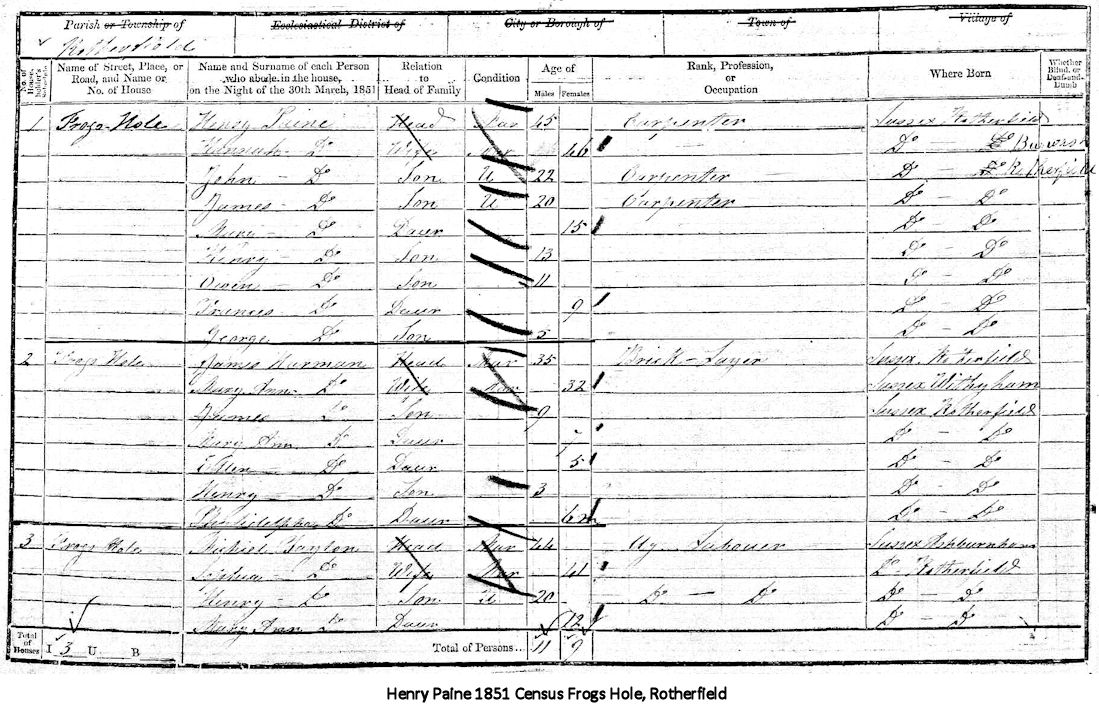 Parish or Township of Ecclesiastical District of City or Borough of Town of Village of
Rotherfield
No. of House-holder's Schedule Name of Street, Place, or Road, and Name or No. of House Name and Surname of each Person who abode in the house, on the Night of the 30th March, 1851 Relation to Head of Family Condition Age of Males Females Rank, Profession, or Occupation Where Born Whether Blind, or Deaf-and-Dumb
1 Frogs Hole Henry Paine Head Mar 45 Carpenter Sussex Rotherfield
Hannah Do Wife Mar 46 Do Burwash
John Do Son U 22 Carpenter Do Rotherfield
James Do Son U 20 Carpenter Do Do
Mary Do Daur 15 Do Do
Henry Do Son 13 Do Do
Owen Do Son 11 Do Do
Frances Do Daur 9 Do Do
George Do Son 5 Do Do
2 Frogs Hole James Harman Head Mar 35 Brick-Layer Sussex Rotherfield
Mary Ann Do Wife Mar 32 Sussex Withyham
James Do Son 9 Sussex Rotherfield
Mary Ann Do Daur 7 Do Do
Ellen Do Daur 5 Do Do
Henry Do Son 3 Do Do
Philadelphia Do Daur 6m Do Do
3 Frogs Hole Head Mar 44 Ag Labourer Sussex Ashburnham
Sophia Do Wife Mar 41 Do Rotherfield
Henry Do Son U 20 Do Do Do Do
Mary Ann Do Daur 12 Do Do
Total of Houses I 3 U B Total of Persons... 11 9
Henry Paine 1851 Census Frogs Hole, Rotherfield